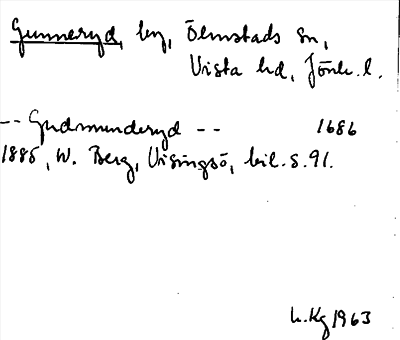 Gunneryd, by, Ölmstads sn,
Vista hd, Jönk. l.
-- Gudmunderyd -- 1686
1885, W. Berg, Visingsö, bil. s. 91.
L. Kg 1963